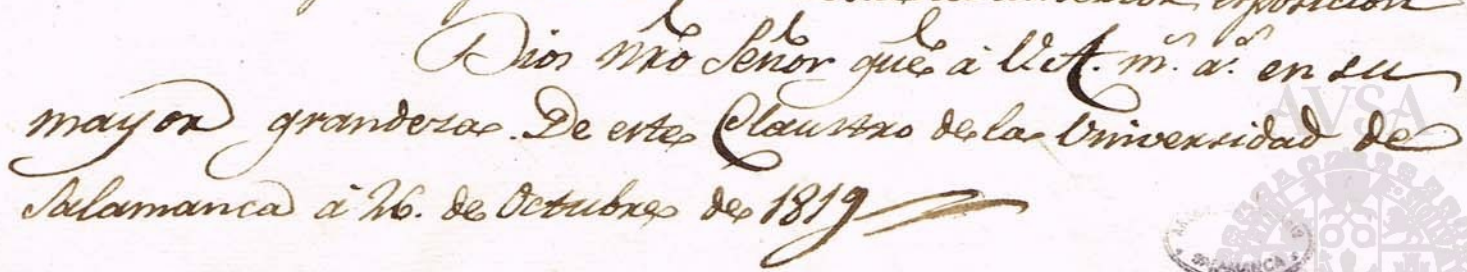 exposicion
Dios nro Señor gue à V.A. m.s a.s en su
mayor grandeza. De este Claustro de la Universidad de
Salamanca à 26. de Octubre de 1819
AVSA
SALAMANCA